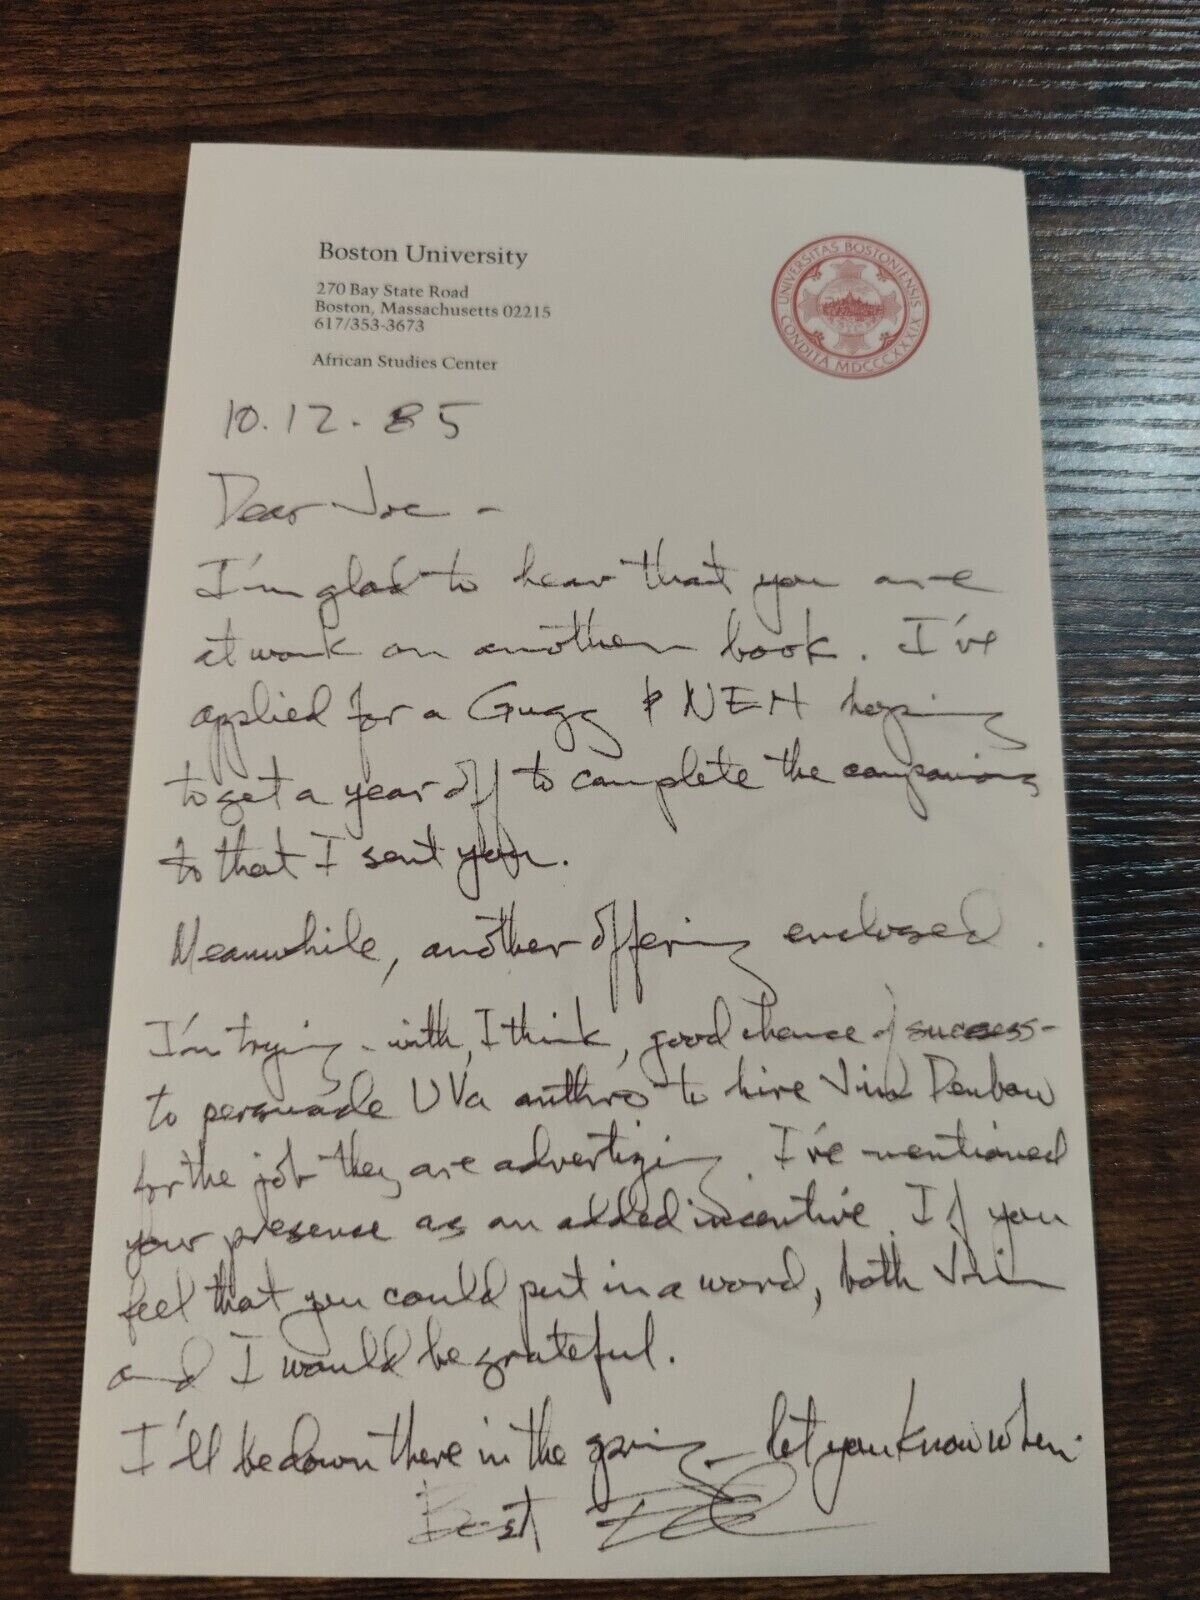 Boston University
270 Bay State Road
Boston, Massachusetts 02215
617/353-3673
African Studies Center
UNIVERSITAS BOSTONIENSIS
CONDITA MDCCCXXXIX
10.12.85
Dear Joe -
I'm glad to hear that you are
at work on another book. I've
applied for a Gugg & NEH hoping
to get a year off to complete the
to that I sent you.
Meanwhile, another offering enclosed.
I'm trying - with, I think, good chance of success -
to persuade UVa anthro to hire Jim Denbow
for the job they are advertizing. I've mentioned
your presence as an added incentive. If you
feel that you could put in a word, both Jim
and I would be grateful.
I'll be down there in the spring - let you know when.
Best